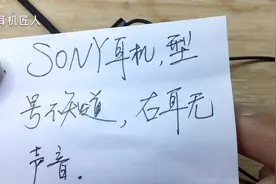 耳机匠人
SONY耳机,型
号不知道,右耳无
声音。